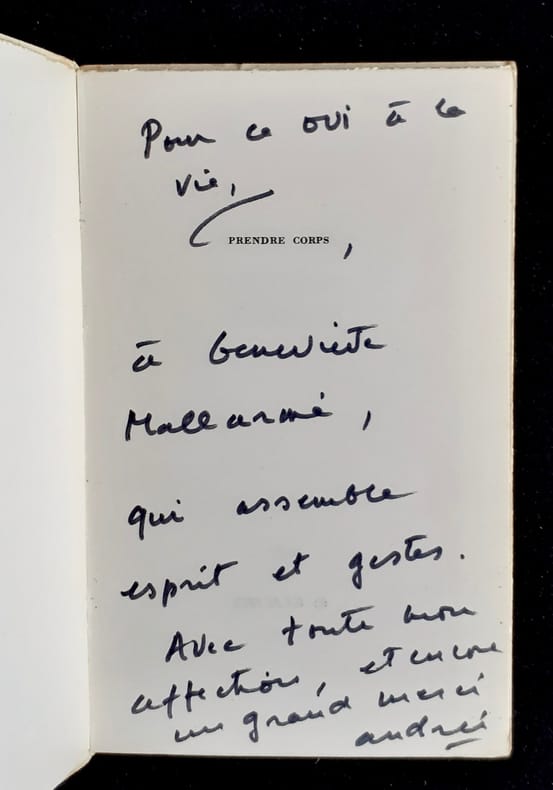 Pour ce oui à la
vie,
PRENDRE CORPS,
à Geneviève
Mallarmé,
qui assemble
esprit et gestes.
Avec toute mon
affection, et encore
un grand merci
andrée